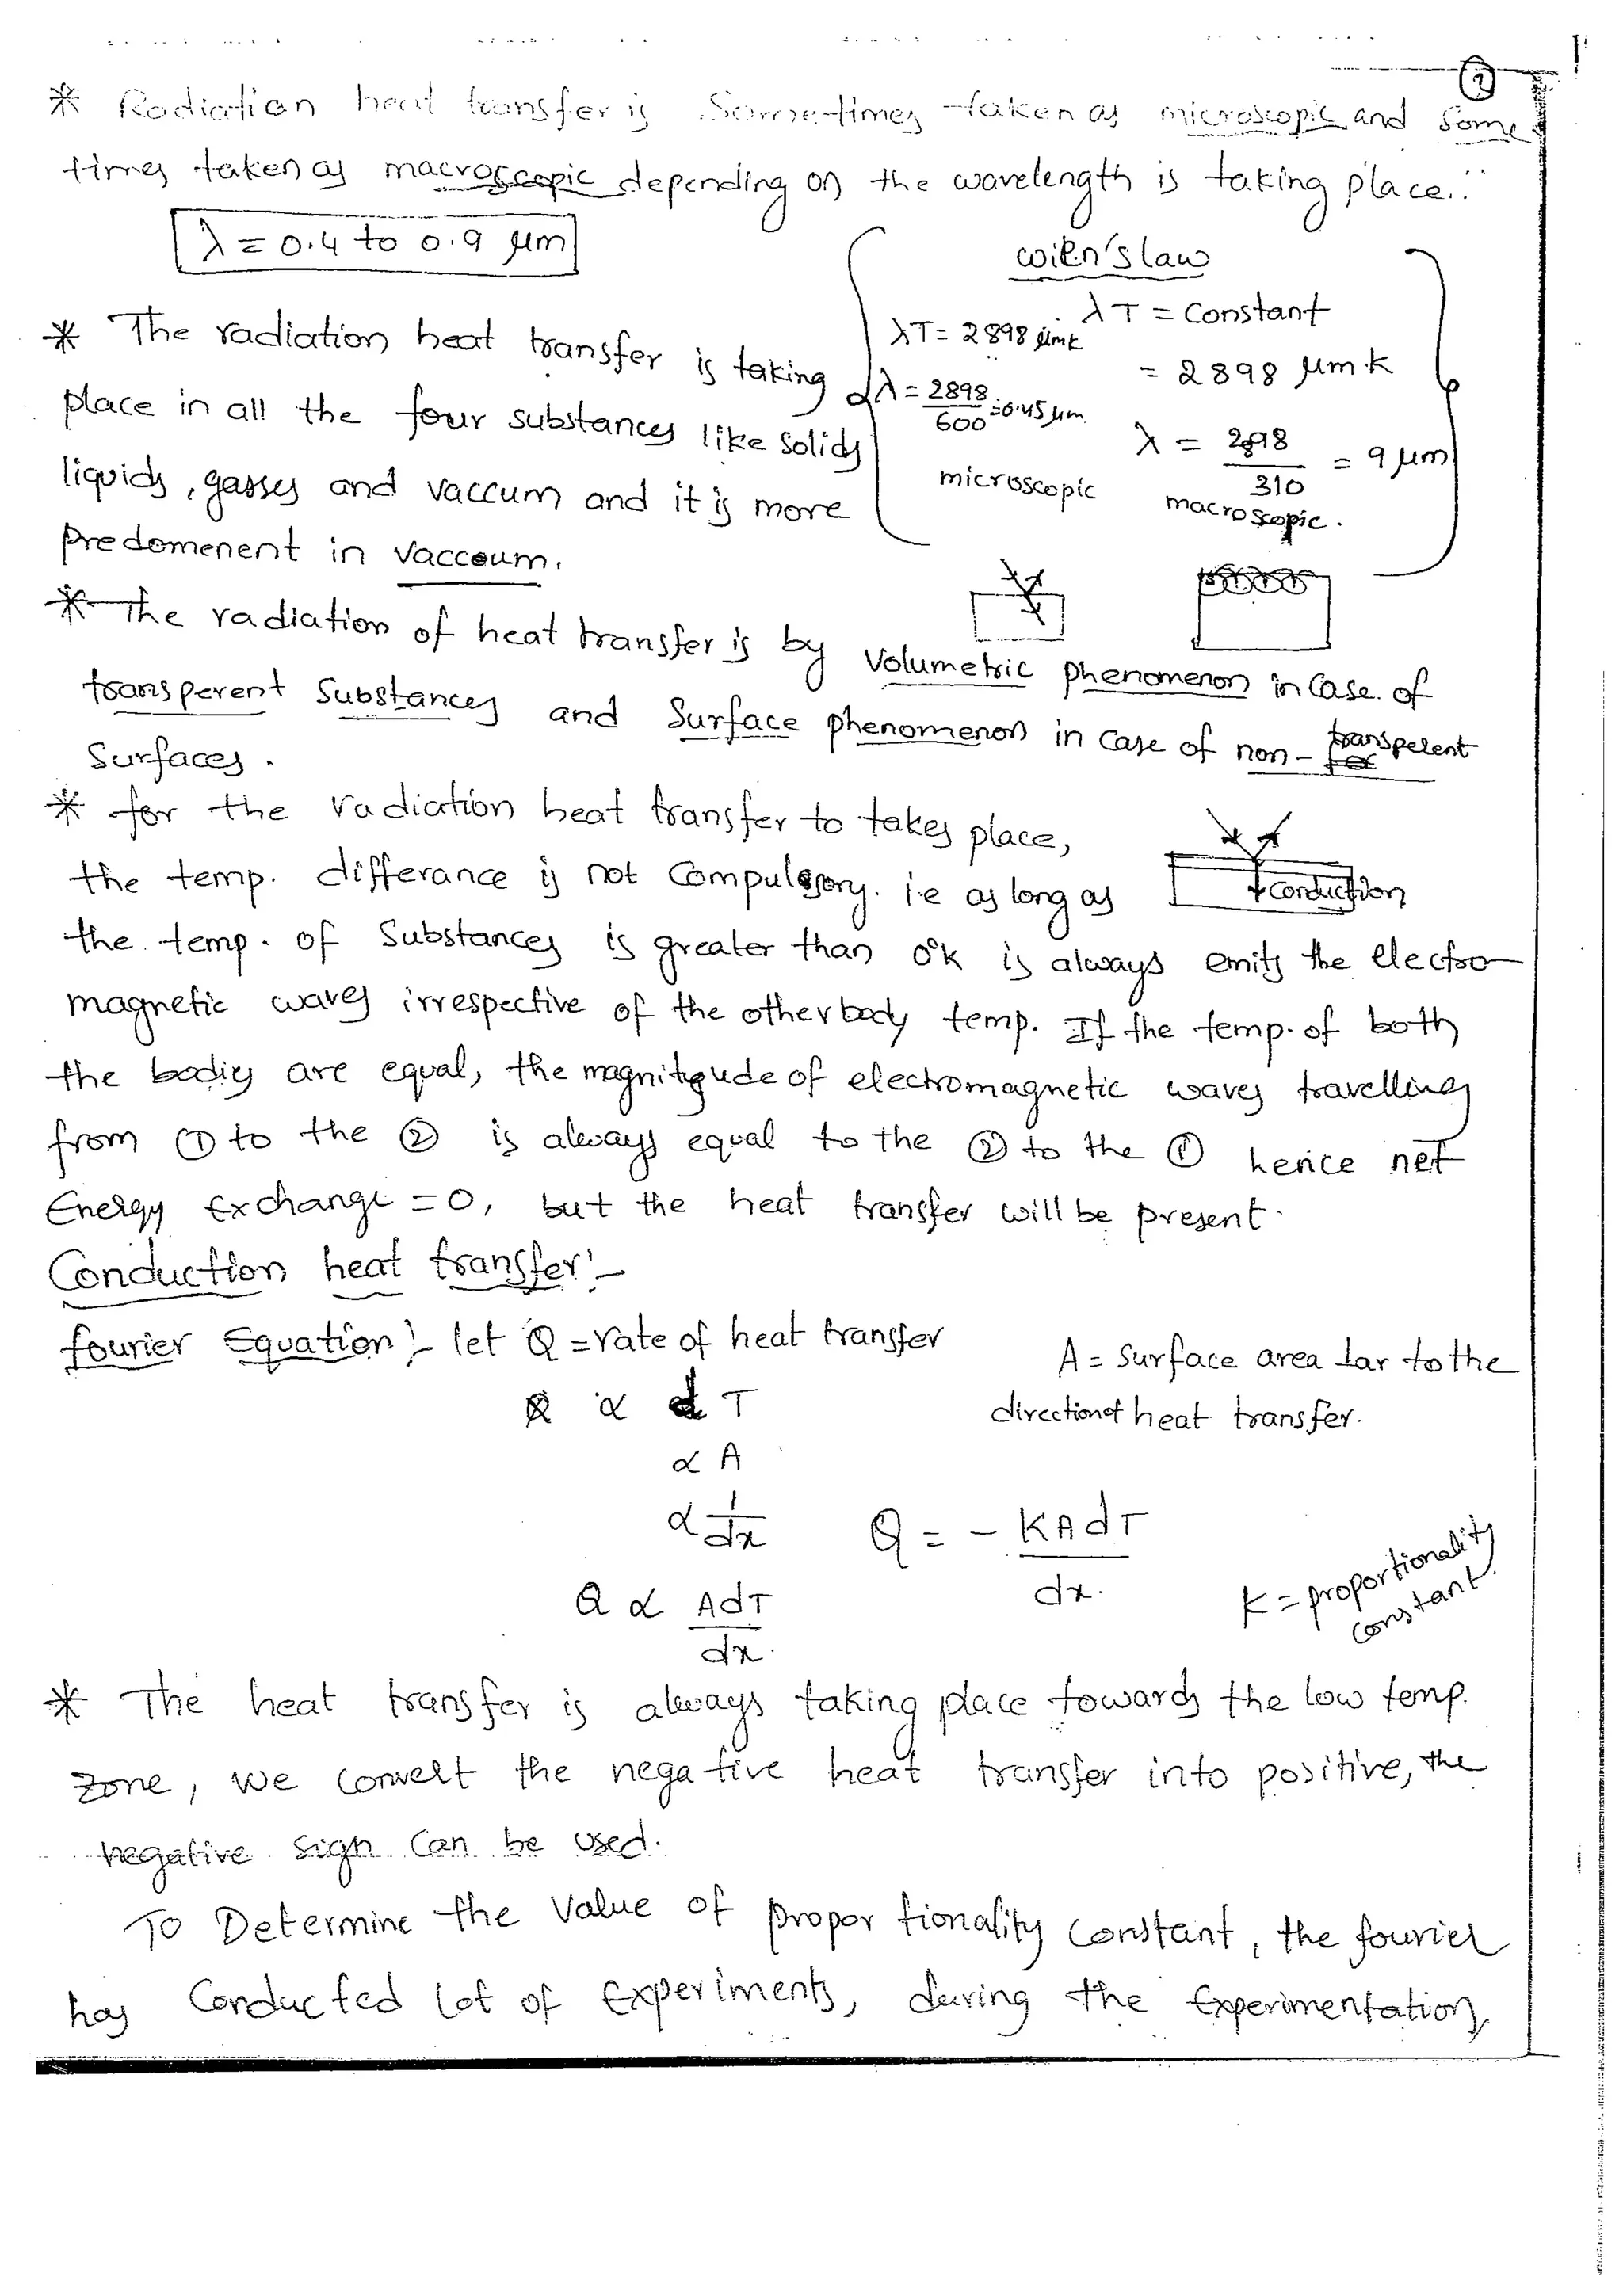 ②
* Radiation heat transfer is Some-times taken as microscopic and some
times taken as macroscopic depending on the wavelength is taking place.
λ = 0.4 to 0.9 μm
Wien's law
λT = Constant
= 2898 μm·k
λ = 2898/310 = 9 μm
macroscopic.
λT = 2898 μmk
λ = 2898/600 = 0.45 μm
microscopic
* The radiation heat transfer is taking
place in all the four substances like solids
liquids, gasses and vaccum and it is more
Predomenent in vaccoum.
* The radiation of heat transfer is by volumetric phenomenon in case of
transperent substances and Surface phenomenon in case of non-transperent
Surfaces.
* for the radiation heat transfer to takes place,
the temp. differance is not Compulsory. i.e as long as
conduction
the temp. of Substances is greater than 0°k is always emits the electro
magnetic waves irrespective of the other body temp. If the temp. of both
the bodies are equal, the magnitude of electromagnetic waves travelling
from ① to the ② is always equal to the ② to the ① hence net
Energy Exchange = 0, but the heat transfer will be present.
Conduction heat transfer:-
fourier Equation:- let Q = rate of heat transfer
A = Surface area ⊥ar to the
direction of heat transfer.
Q ∝ dT
∝ A
∝ 1/dx
Q ∝ AdT/dx.
Q = - KAdT/dx.
K = proportionality
constant.
* The heat transfer is always taking place towards the low temp.
zone, we convert the negative heat transfer into positive, the
negative sign can be used.
To Determine the value of proportionality constant, the fourier
has Conducted lot of Experiments, during the Experimentation,